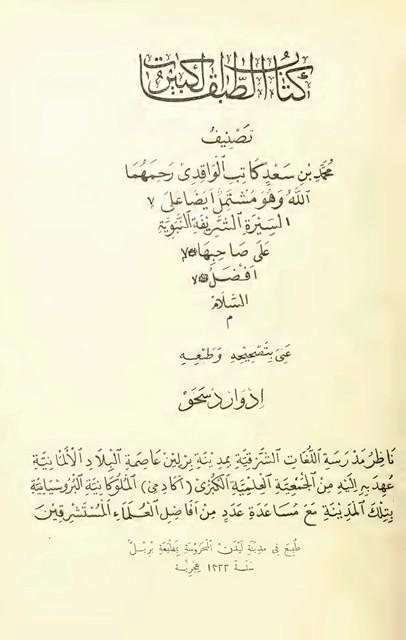 كتاب الطبقات الكبير
تصنيف
محمد بن سعد كاتب الواقدي رحمهما
الله وهو مشتمل ايضا على
السيرة الشريفة النبوية
على صاحبها
افضل
السلام
م
عنى بتصحيحه وطبعه
ادوارد سخو
ناظر مدرسة اللغات الشرقية بمدينة برلين عاصمة البلاد الالمانية
عهد به اليه من الجمعية العلمية الكبرى (اكادمى) الملوكانية البروسيانية
بتلك المدينة مع مساعدة عدد من افاضل العلماء المستشرقين
طبع في مدينة ليدن المحروسة بمطبعة بريل
سنة ١٣٢٢ هجرية